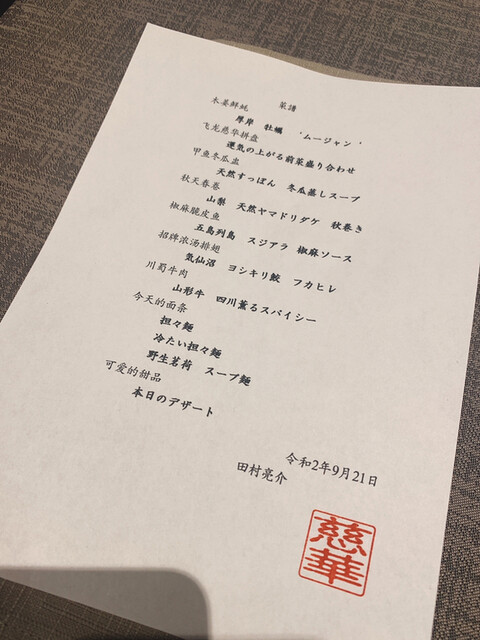 菜譜
木姜鮮蚝
厚岸 牡蠣 ‘ムージャン’
飞龙慈华拼盘
運気の上がる前菜盛り合わせ
甲鱼冬瓜盅
天然すっぽん 冬瓜蒸しスープ
秋天春卷
山梨 天然ヤマドリダケ 秋巻き
椒麻脆皮鱼
五島列島 スジアラ 椒麻ソース
招牌浓汤排翅
気仙沼 ヨシキリ鮫 フカヒレ
川蜀牛肉
山形牛 四川薫るスパイシー
今天的面条
担々麺
冷たい担々麺
野生茗荷 スープ麺
可爱的甜品
本日のデザート
令和2年9月21日
田村亮介
慈華